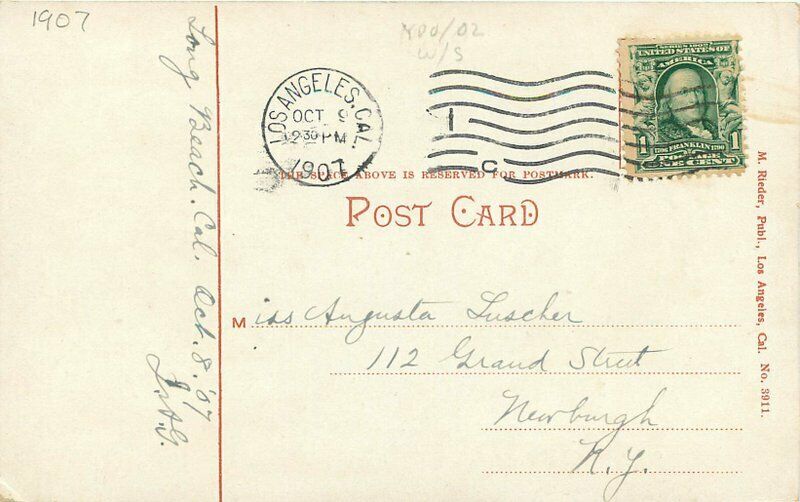 1907
LOS ANGELES, CAL.
OCT 9
230 PM
1907
1
C
SERIES 1902
UNITED STATES OF
AMERICA
1706 FRANKLIN 1790
1 1
POSTAGE
ONE CENT
THE SPACE ABOVE IS RESERVED FOR POSTMARK.
POST CARD
Miss Augusta Luscher
112 Grand Street
Newburgh
N.Y.
Long Beach. Cal. Oct. 8. '07
M. Rieder, Publ., Los Angeles, Cal. No. 3911.